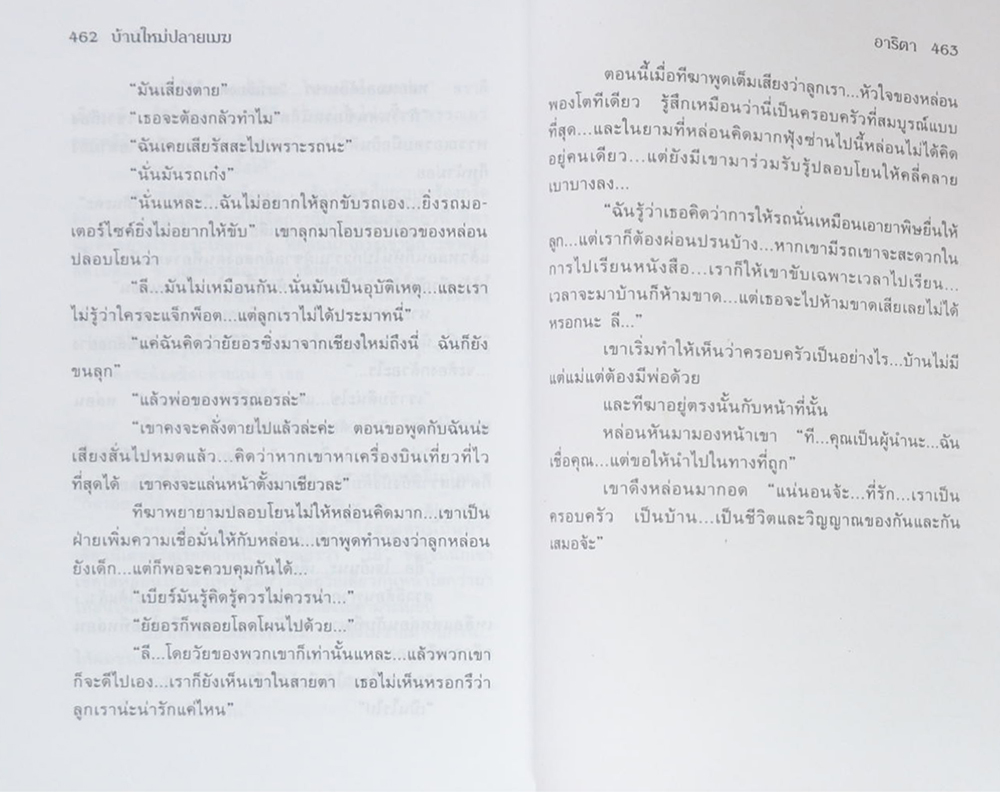 462 บ้านใหม่ปลายเมฆ
“มันเสี่ยงตาย”
“เธอจะต้องกลัวทำไม”
“ฉันเคยเสียรัสสะไปเพราะรถนะ”
“นั่นมันรถเก๋ง”
“นั่นแหละ...ฉันไม่อยากให้ลูกขับรถเอง...ยิ่งรถมอ-
เตอร์ไซค์ยิ่งไม่อยากให้ขับ” เขาลุกมาโอบรอบเอวของหล่อน
ปลอบโยนว่า
“ลี...มันไม่เหมือนกัน นั่นมันเป็นอุบัติเหตุ...และเรา
ไม่รู้ว่าใครจะแจ็กพ็อต...แต่ลูกเราไม่ได้ประมาทนี่”
“แค่ฉันคิดว่ายัยอรซิ่งมาจากเชียงใหม่ถึงนี่ ฉันก็ยัง
ขนลุก”
“แล้วพ่อของพรรณอรล่ะ”
“เขาคงจะคลั่งตายไปแล้วล่ะค่ะ ตอนขอพูดกับฉันน่ะ
เสียงสั่นไปหมดแล้ว...คิดว่าหากเขาหาเครื่องบินเที่ยวที่ไว
ที่สุดได้ เขาคงจะแล่นหน้าตั้งมาเชียวละ”
ทีฆาพยายามปลอบโยนไม่ให้หล่อนคิดมาก...เขาเป็น
ฝ่ายเพิ่มความเชื่อมั่นให้กับหล่อน...เขาพูดทำนองว่าลูกหล่อน
ยังเด็ก...แต่ก็พอจะควบคุมกันได้...
“เบียร์มันรู้คิดรู้ควรไม่ควรน่า...”
“ยัยอรก็พลอยโลดโผนไปด้วย...”
“ลี...โดยวัยของพวกเขาก็เท่านั้นแหละ...แล้วพวกเขา
ก็จะดีไปเอง...เราก็ยังเห็นเขาในสายตา เธอไม่เห็นหรอกรึว่า
ลูกเราน่ะน่ารักแค่ไหน”
อาริตา 463
ตอนนี้เมื่อทีฆาพูดเต็มเสียงว่าลูกเรา...หัวใจของหล่อน
พองโตทีเดียว รู้สึกเหมือนว่านี่เป็นครอบครัวที่สมบูรณ์แบบ
ที่สุด...และในยามที่หล่อนคิดมากฟุ้งซ่านไปนี้หล่อนไม่ได้คิด
อยู่คนเดียว...แต่ยังมีเขามาร่วมรับรู้ปลอบโยนให้คลี่คลาย
เบาบางลง...
“ฉันรู้ว่าเธอคิดว่าการให้รถนั่นเหมือนเอายาพิษยื่นให้
ลูก...แต่เราก็ต้องผ่อนปรนบ้าง...หากเขามีรถเขาจะสะดวกใน
การไปเรียนหนังสือ...เราก็ให้เขาขับเฉพาะเวลาไปเรียน...
เวลาจะมาบ้านก็ห้ามขาด...แต่เธอจะไปห้ามขาดเสียเลยไม่ได้
หรอกนะ ลี...”
เขาเริ่มทำให้เห็นว่าครอบครัวเป็นอย่างไร...บ้านไม่มี
แต่แม่แต่ต้องมีพ่อด้วย
และทีฆาอยู่ตรงนั้นกับหน้าที่นั้น
หล่อนหันมามองหน้าเขา “ที...คุณเป็นผู้นำนะ...ฉัน
เชื่อคุณ...แต่ขอให้นำไปในทางที่ถูก”
เขาดึงหล่อนมากอด “แน่นอนจ้ะ...ที่รัก...เราเป็น
ครอบครัว เป็นบ้าน...เป็นชีวิตและวิญญาณของกันและกัน
เสมอจ้ะ”